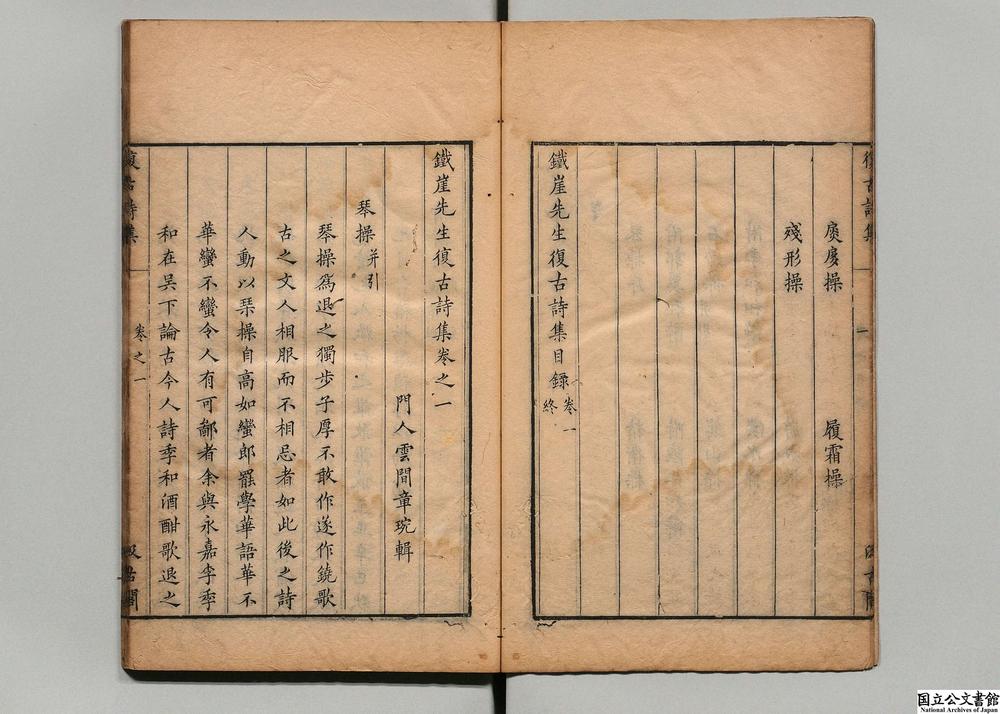 復古詩集
一
汲古閣
㢋㢋操
履霜操
殘形操
鐵崖先生復古詩集目録卷一終
鐵崖先生復古詩集卷之一
門人雲間章琬輯
琴操并引
琴操爲退之獨步子厚不敢作遂作鐃歌
古之文人相服而不相忌者如此後之詩
人動以琹操自高如蠻郎罷學華語華不
華蠻不蠻令人有可鄙者余與永嘉李季
和在吴下論古今人詩季和酒酣歌退之
復古詩集
卷之一
一
汲古閣
国立公文書館
National Archives of Japan